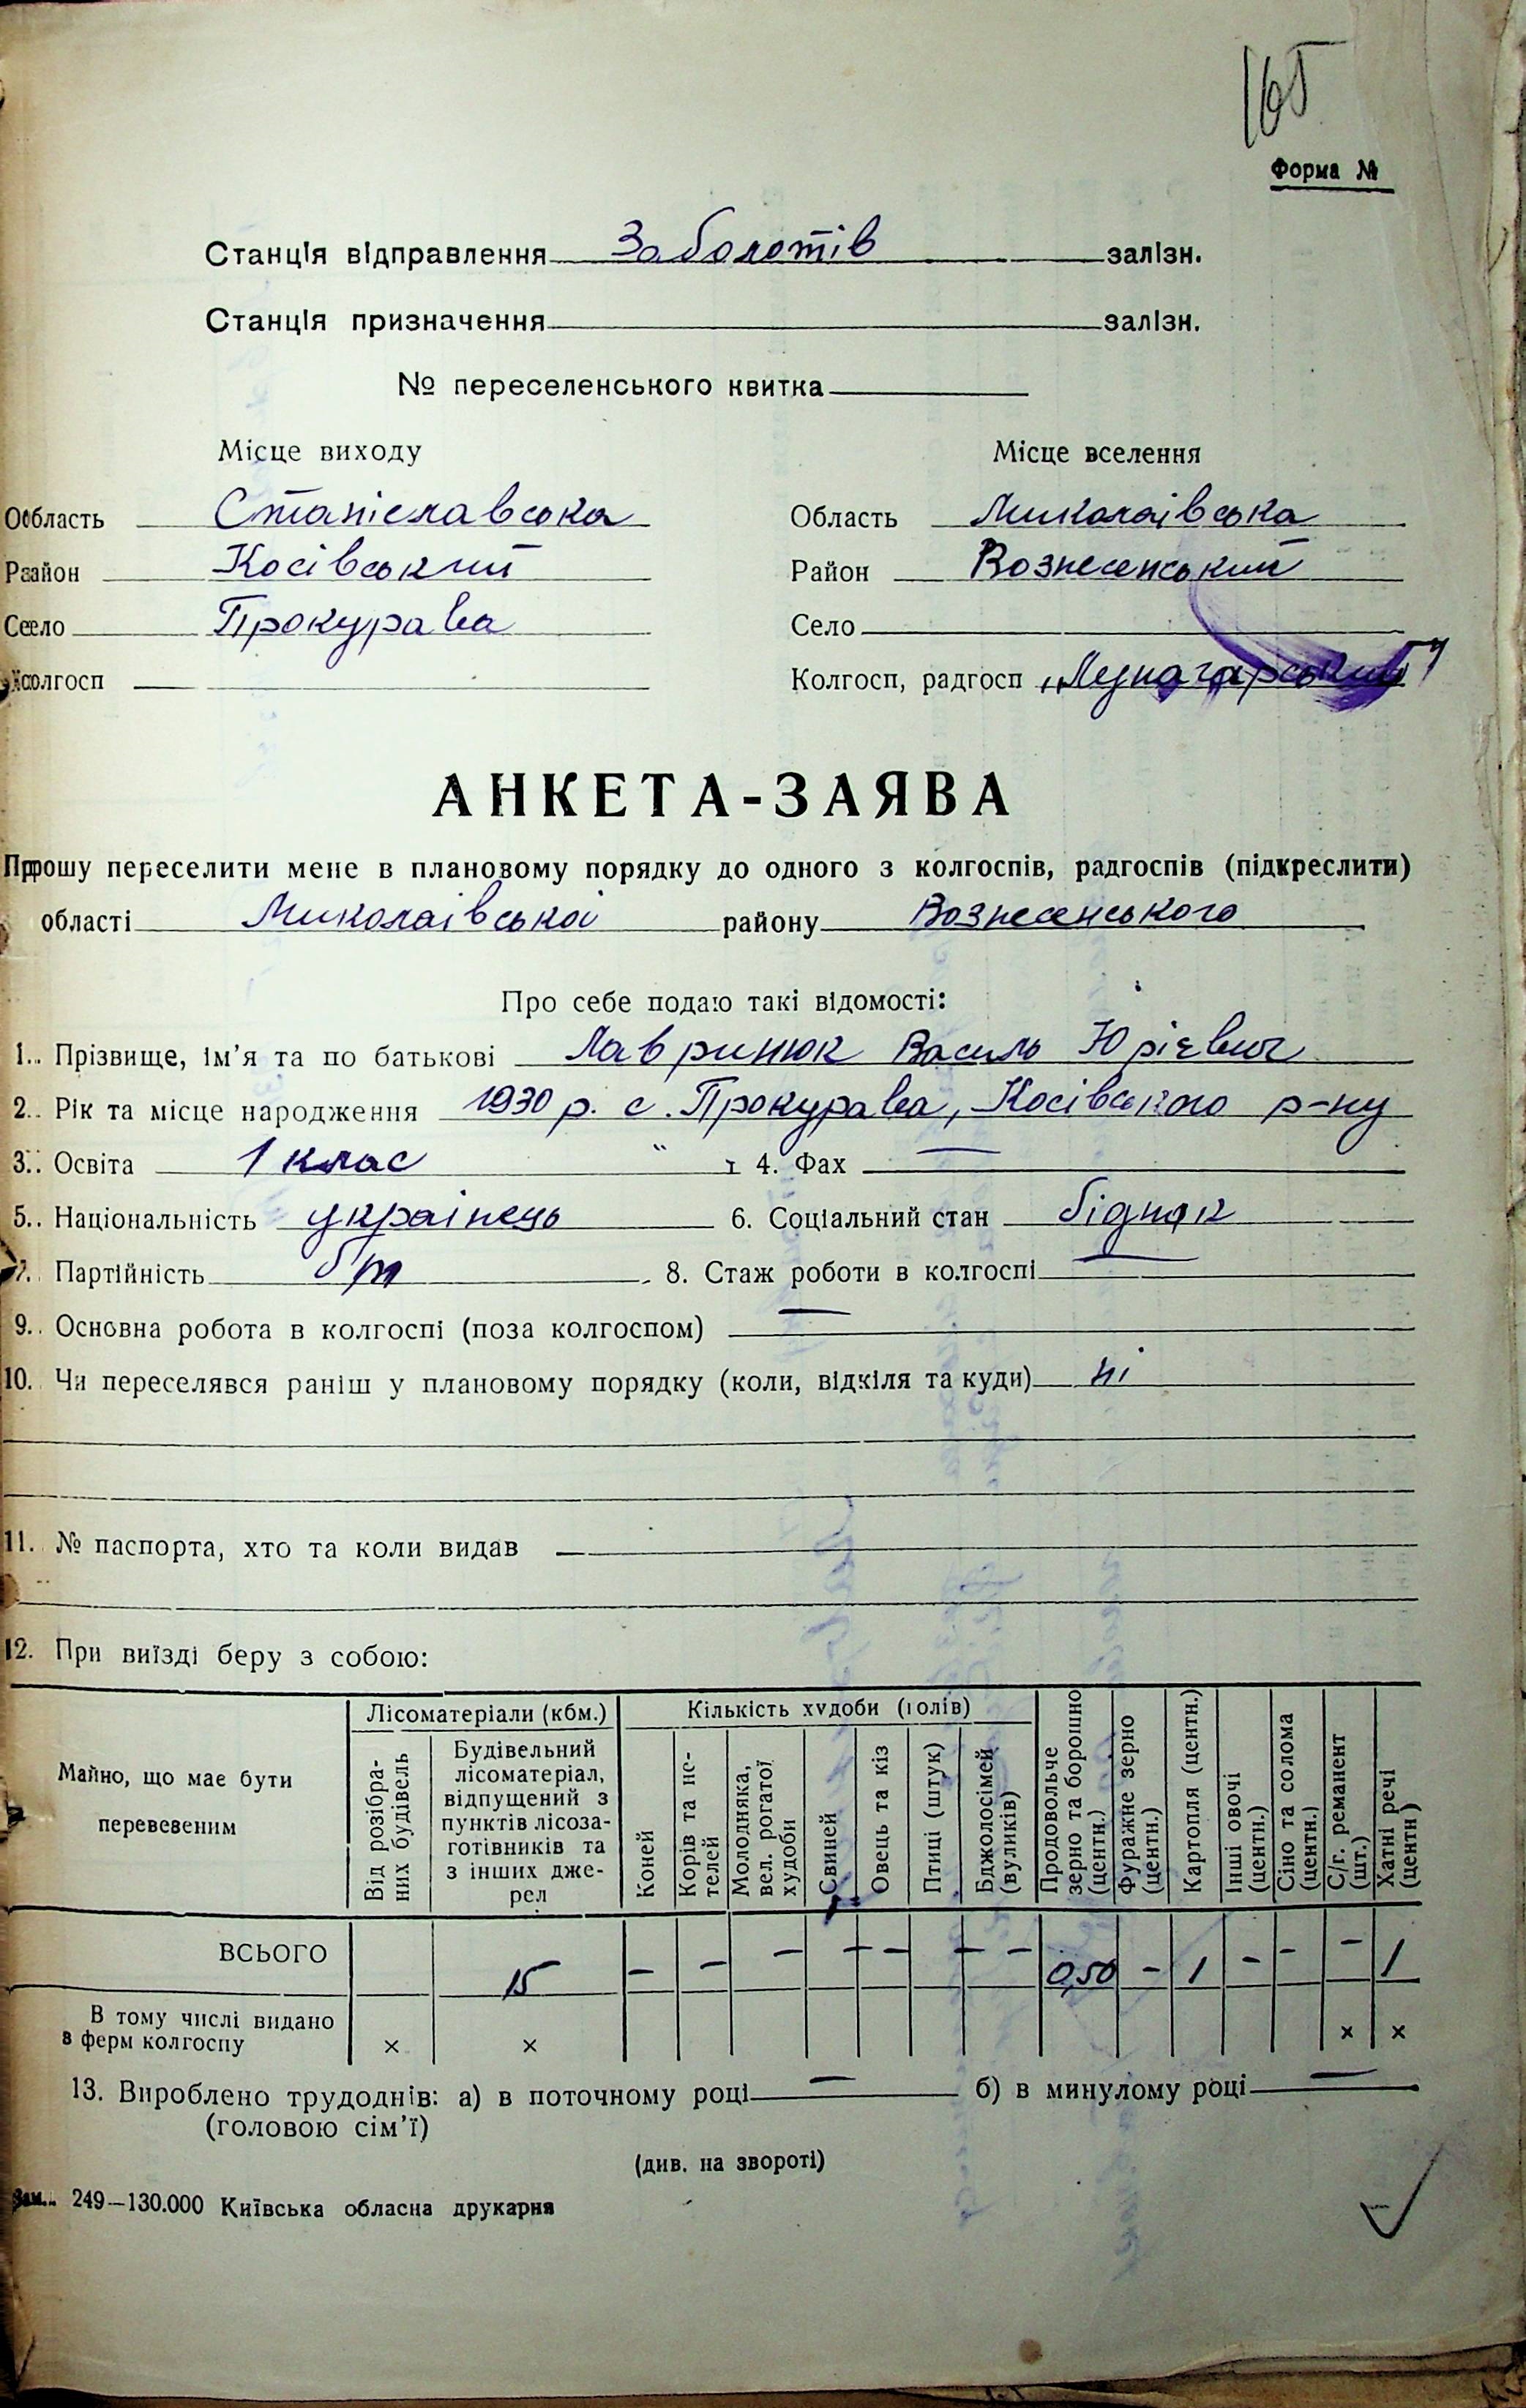 165
Форма №
Станція відправлення Заболотів залізн.
Станція призначення залізн.
№ переселенського квитка
Місце виходу Місце вселення
Область Станіславська Область Миколаівська
Район Косівський Район Вознесенський
Село Прокурава Село
Колгосп Колгосп, радгосп „Луначарський"
АНКЕТА-ЗАЯВА
Прошу переселити мене в плановому порядку до одного з колгоспів, радгоспів (підкреслити)
області Миколаівської району Вознесенського
Про себе подаю такі відомості:
1. Прізвище, ім’я та по батькові Лавринюк Василь Юрієвич
2. Рік та місце народження 1930 р. с. Прокурава, Косівського р-ну
3. Освіта 1 клас 4. Фах —
5. Національність украінець 6. Соціальний стан бідняк
7. Партійність б/п 8. Стаж роботи в колгоспі —
9. Основна робота в колгоспі (поза колгоспом) —
10. Чи переселявся раніш у плановому порядку (коли, відкіля та куди) ні
11. № паспорта, хто та коли видав
12. При виїзді беру з собою:
Майно, що має бути перевезеним
Лісоматеріали (кбм.)
Від розібраних будівель
Будівельний лісоматеріал, відпущений з пунктів лісозаготівників та з інших джерел
Кількість худоби (голів)
Коней
Корів та нетелей
Молодняка, вел. рогатої худоби
Свиней
Овець та кіз
Птиці (штук)
Бджолосімей (вуликів)
Продовольче зерно та борошно (центн.)
Фуражне зерно (центн.)
Картопля (центн.)
Інші овочі (центн.)
Сіно та солома (центн.)
С/г. реманент (шт.)
Хатні речі (центн)
ВСЬОГО 15 — — — — — — — 0,50 — 1 — — — 1
В тому числі видано з ферм колгоспу × × × ×
13. Вироблено трудоднів: а) в поточному році — б) в минулому році —
(головою сім’ї)
(див. на звороті)
Зам. 249—130.000 Київська обласна друкарня